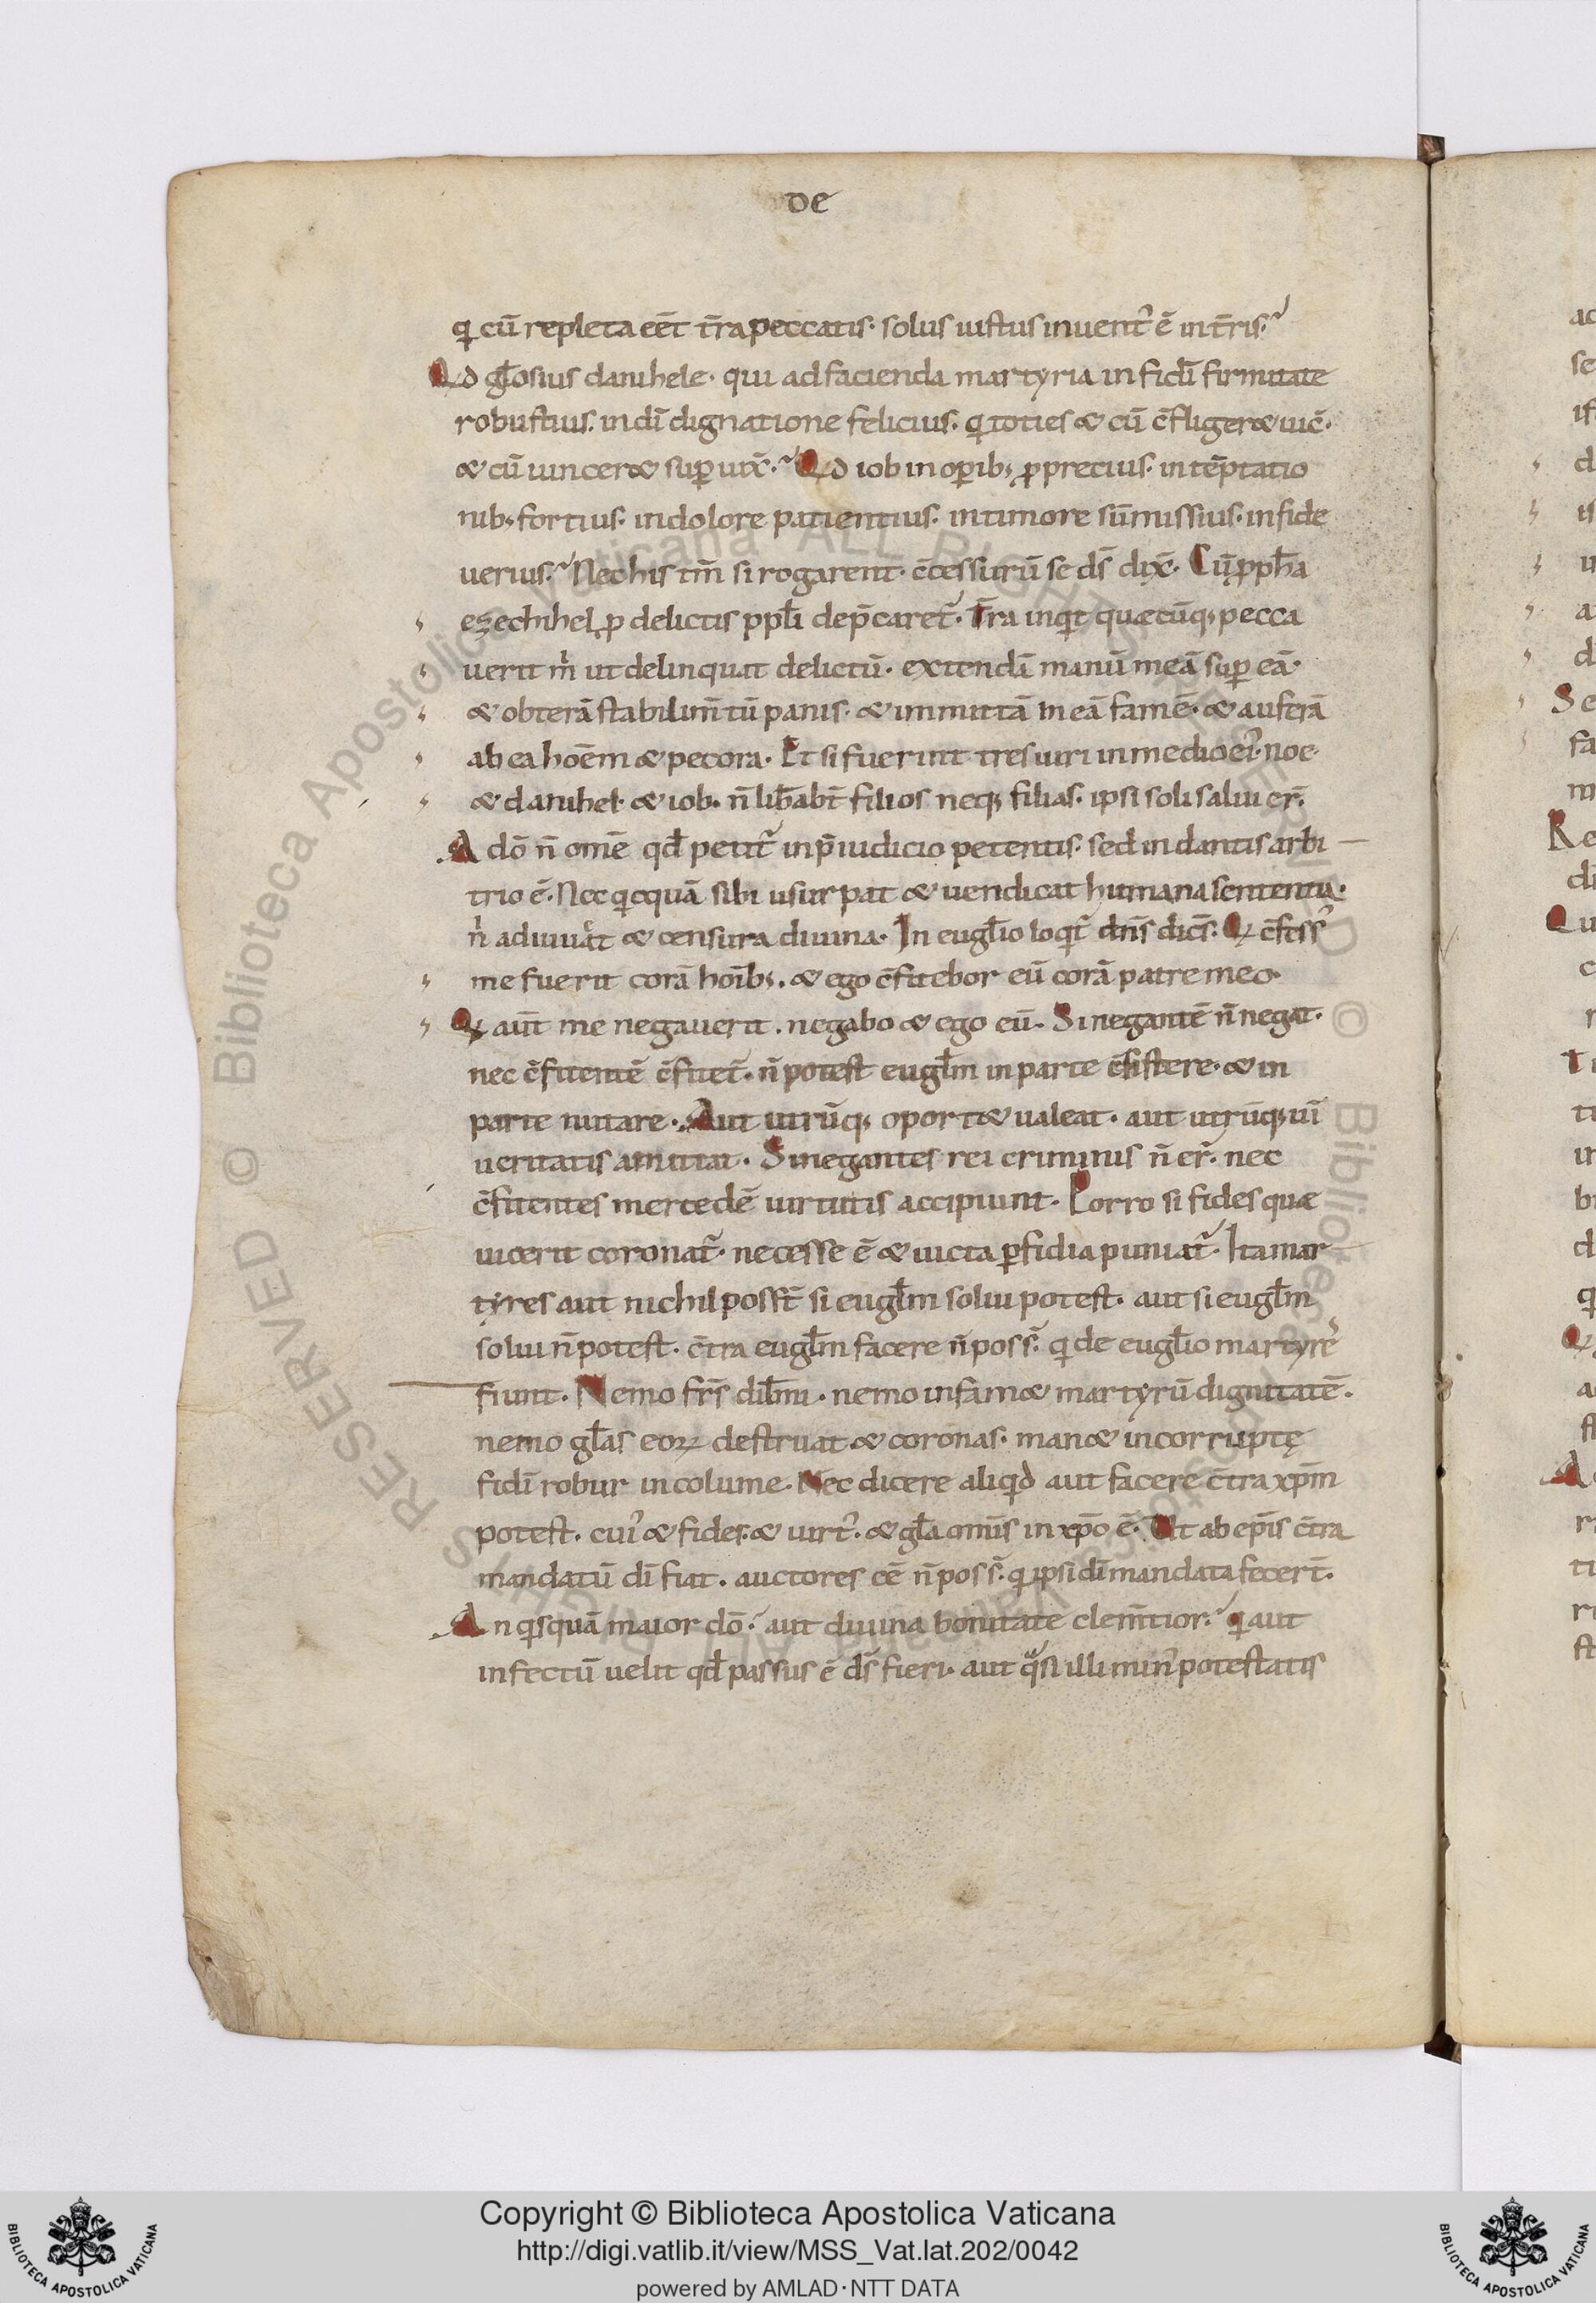 DE
q cū repleta eēt t̄ra peccatis· solus iustus inuent᾿ ē in t̄ris·
Qd gl̄osius danihele· qui ad facienda martyria in fidī firmitate
robustius· in dī dignatione felicius· q toties & cū c̄fliger& uic̄·
& cū uincer& suꝑuix̄· Qd iob in oꝑib; ꝓpretius· in tēptatio
nib; fortius· in dolore patientius· in timore sūmissius· in fide
uerius· Nec his tm̄ si rogarent· c̄cessurū se ds̄ dix̄· Cū ꝓpph̄a
ezechihel ꝓ delictis ppl̄i dep̄caret᷑· T̄ra inqt quæcūq; pecca
uerit m̄ ut delinquat delictū· extendā manū meā suꝑ eā·
& obterā stabilim̄tū panis· & immittā in eā famē· & auferā
ab ea hoēm & pecora· Et si fuerint tres uiri in medio ei᾿· noe·
& danihel· & iob· n̄ lib̄abt̄ filios neq; filias· ipsi soli salui er̄·
Adō n̄ omē qd̄ petit᷑ in p̄iudicio petentis· sed in dantis arbi
trio ē· Nec qcquā sibi usurpat & uendicat humana sententia·
n̄ adnuat & censura diuina· In eugl̄io loqt᷑ dn̄s dicēs· Q c̄fess᾿
me fuerit corā hoīb;· & ego c̄fitebor eū corā patre meo·
Q aut̄ me negauerit· negabo & ego eū· Si negantē n̄ negat·
nec c̄fitentē c̄fitet᷑· n̄ potest eugl̄m in parte c̄sistere· & in
parte nutare· Aut utrūq; oport& ualeat· aut utrūq; uī
ueritatis amittat· Si negantes rei criminis n̄ er̄· nec
c̄fitentes mercedē uirtutis accipiunt· Porro si fides quæ
uicerit coronat᷑· necesse ē & uicta ꝑfidia puniat᷑· Ita mar
tyres aut nichil posst̄ si eugl̄m solui potest· aut si eugl̄m
solui n̄ potest· c̄tra eugl̄m facere n̄ poss̄· q de eugl̄io martyrē᾿
fiunt· Nemo frs̄ dil̄mi· nemo infam& martyrū dignitatē·
nemo gl̄as eoꝝ destruat & coronas· man& incorruptę
fidī robur incolume· Nec dicere aliqd aut facere c̄tra xp̄m
potest· cui᾿ & fides· & uirt᾿· & gl̄a omīs in xp̄o ē· Ut ab ep̄is c̄tra
mandatū dī fiat· auctores eē n̄ poss̄· q ipsi dī mandata fecert̄·
An qsquā maior dō· aut diuina bonitate clem̄tior· q aut
infectū uelit qd̄ passus ē ds̄ fieri· aut qͣsi illi min᾿ potestatis
Copyright © Biblioteca Apostolica Vaticana
http://digi.vatlib.it/view/MSS_Vat.lat.202/0042
powered by AMLAD·NTT DATA